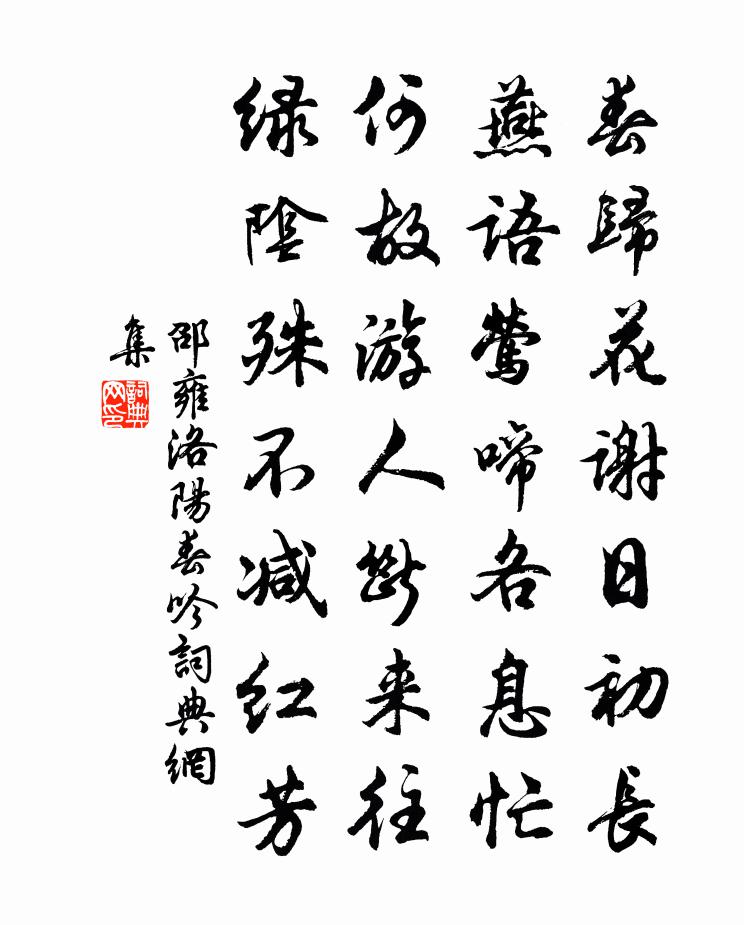 春歸花謝日初長
燕語鶯啼各息忙
何故游人斷来往
緑陰殊不减紅芳
邵雍洛陽春吟詞典網
集
詞典
网印